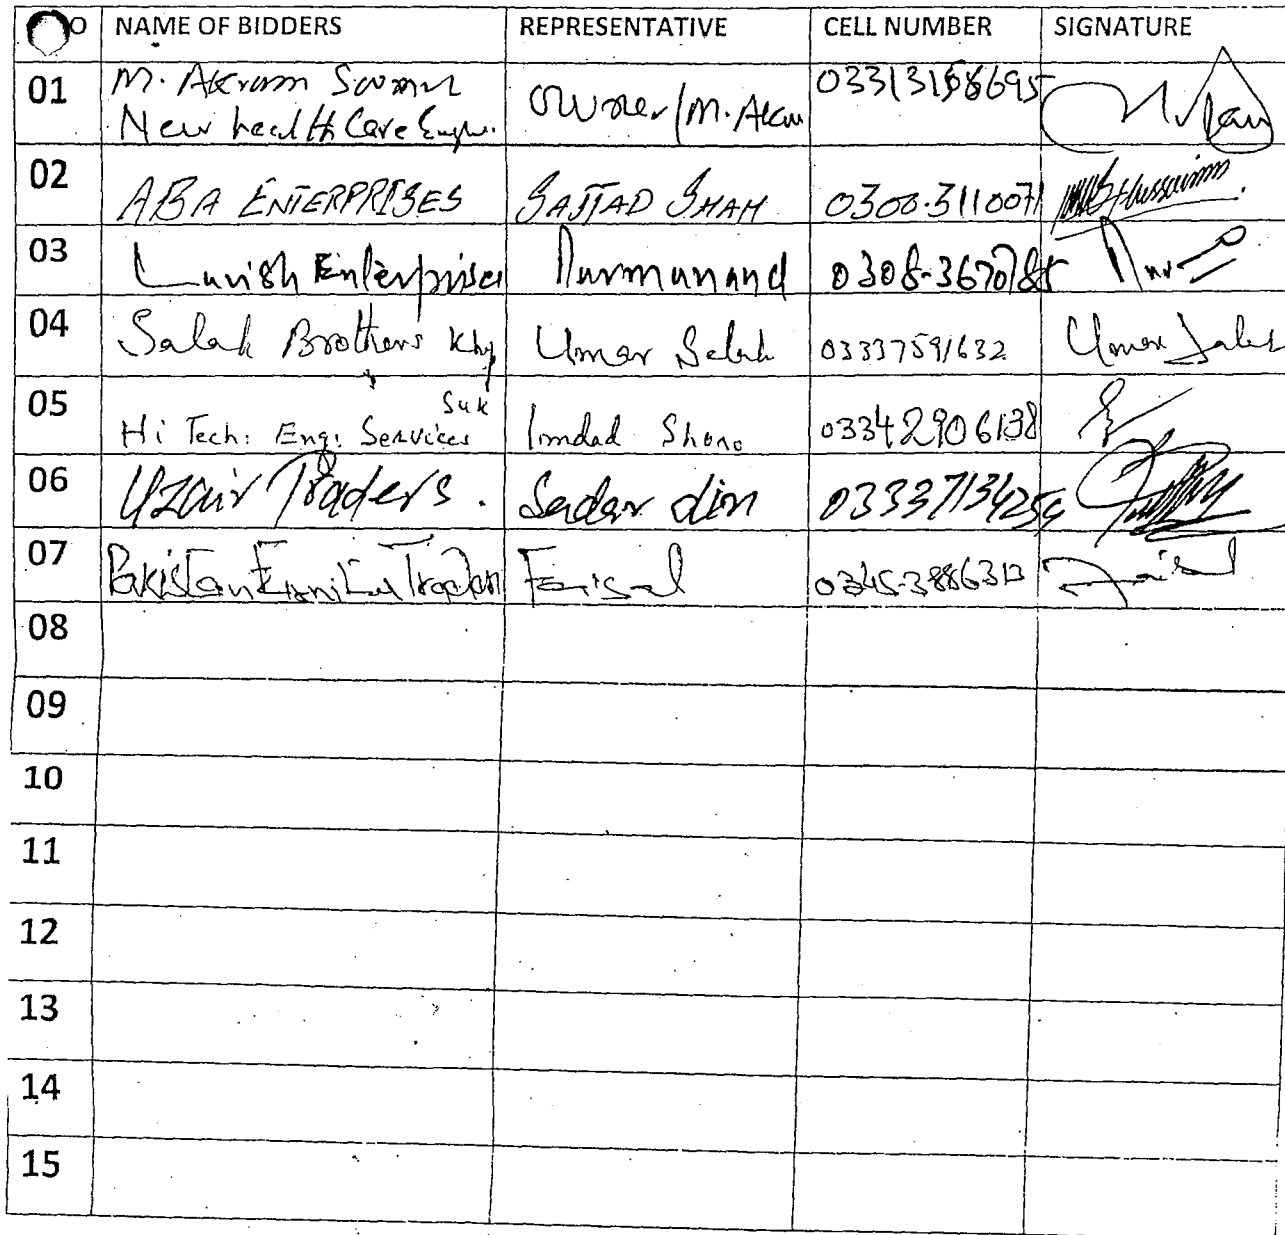 O NAME OF BIDDERS REPRESENTATIVE CELL NUMBER SIGNATURE
01 M. Akram Soomro
New health Care Owner/M. Akram 03313158695
02 ABA ENTERPRISES SAJJAD SHAH 0300-3110071 Hussain
03 Lavish Enterprises Nurmunand 0308-3670785
04 Salah Brothers Khp Umar Salah 03337591632 Umar Salah
05 Hi Tech: Eng: Services Suk Imdad Shoro 03342906138
06 Uzair Traders. Sadar din 03337134254
07 Pakistan Furniture Traders Faisal 0345-3886313 Faisal
08
09
10
11
12
13
14
15